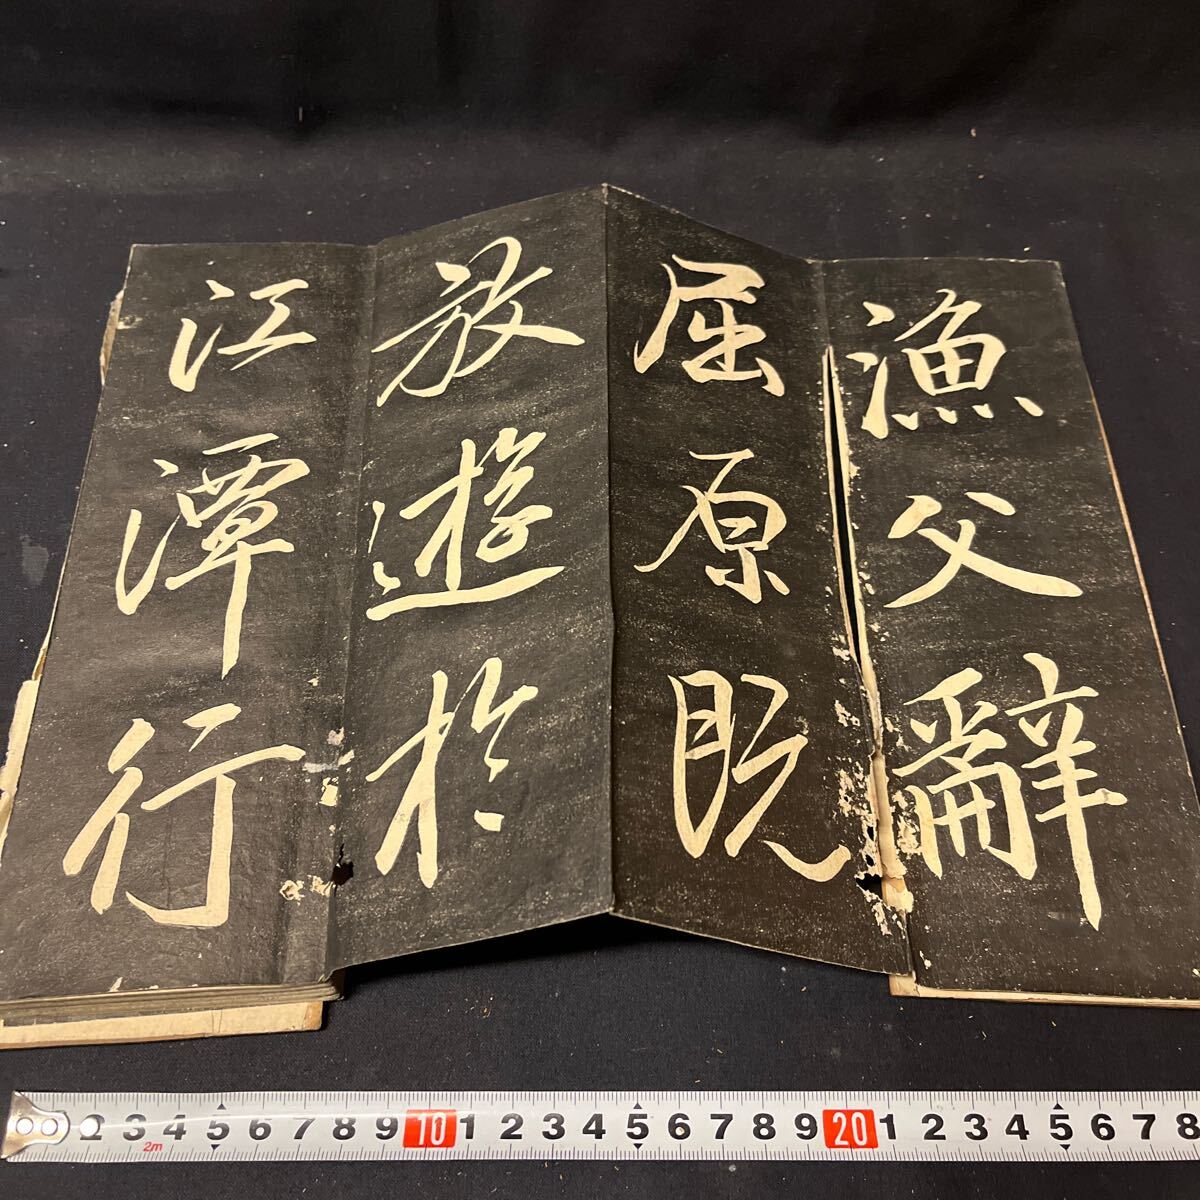 漁父辭
屈原既
放遊於
江潭行
2 3 4 5 6 7 8 9 10 1 2 3 4 5 6 7 8 9 20 1 2 3 4 5 6 7 8
2m